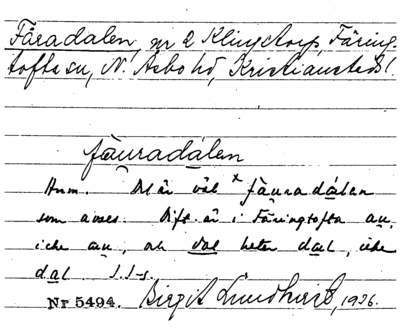 Färadalen, nr 2 Klingstorp, Färing-
tofta sn, N. Åsbo hd, Kristianstads l.
fäuradalen
Hum. Det är väl x fäuradalen
som avses. Dift. är i Färingtofta au,
icke au, och dal heter dal, icke
dal. I. I-s.
Nr 5494. Birgit Lundkvist, 1936.